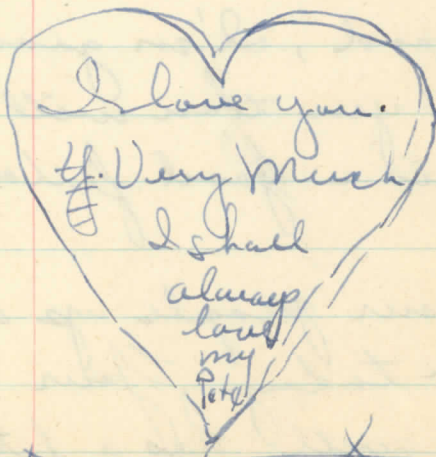 I love you.
Very Much
I shall
always
love
my
Pete